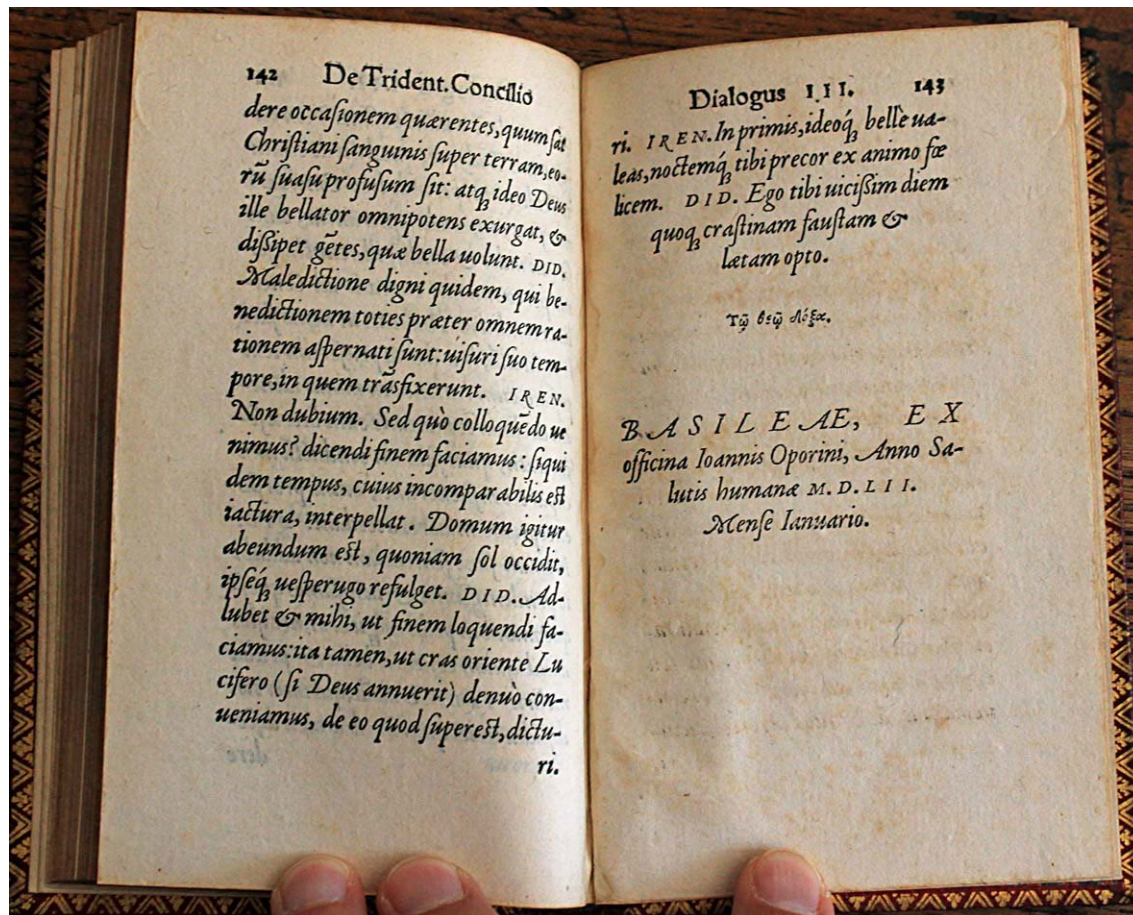 142 De Trident. Concilio
dere occaſionem quærentes, quum ſat
Chriſtiani ſanguinis ſuper terram, eo-
rũ ſuaſu profuſum ſit: atq́ꝫ ideo Deus
ille bellator omnipotens exurgat, &
diſsipet gẽtes, quæ bella uolunt. DID.
Maledictione digni quidem, qui be-
nedictionem toties præter omnem ra-
tionem aſpernati ſunt: uiſuri ſuo tem-
pore, in quem trãsfixerunt. IREN.
Non dubium. Sed quò colloquẽdo ue
nimus? dicendi finem faciamus: ſiqui
dem tempus, cuius incomparabilis eſt
iactura, interpellat. Domum igitur
abeundum eſt, quoniam ſol occidit,
ipſeq́ꝫ ueſperugo refulget. DID. Ad-
lubet & mihi, ut finem loquendi fa-
ciamus: ita tamen, ut cras oriente Lu
cifero (ſi Deus annuerit) denuò con-
ueniamus, de eo quod ſupereſt, dictu-
ri.
Dialogus III. 143
ri. IREN. In primis, ideoq́ꝫ bellè ua-
leas, noctemq́ꝫ tibi precor ex animo fœ
licem. DID. Ego tibi uiciſsim diem
quoqꝫ craſtinam fauſtam &
lætam opto.
Τῷ θεῷ δόξα.
BASILEAE, EX
officina Ioannis Oporini, Anno Sa-
lutis humanæ M. D. LII.
Menſe Ianuario.